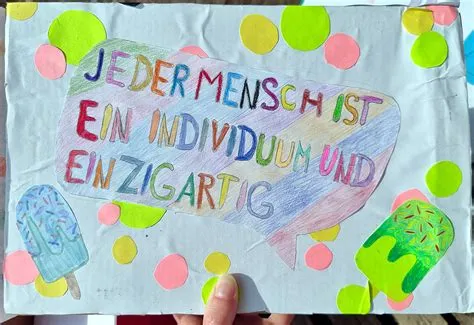 JEDER MENSCH IST
EIN INDIVIDUUM UND
EINZIGARTIG